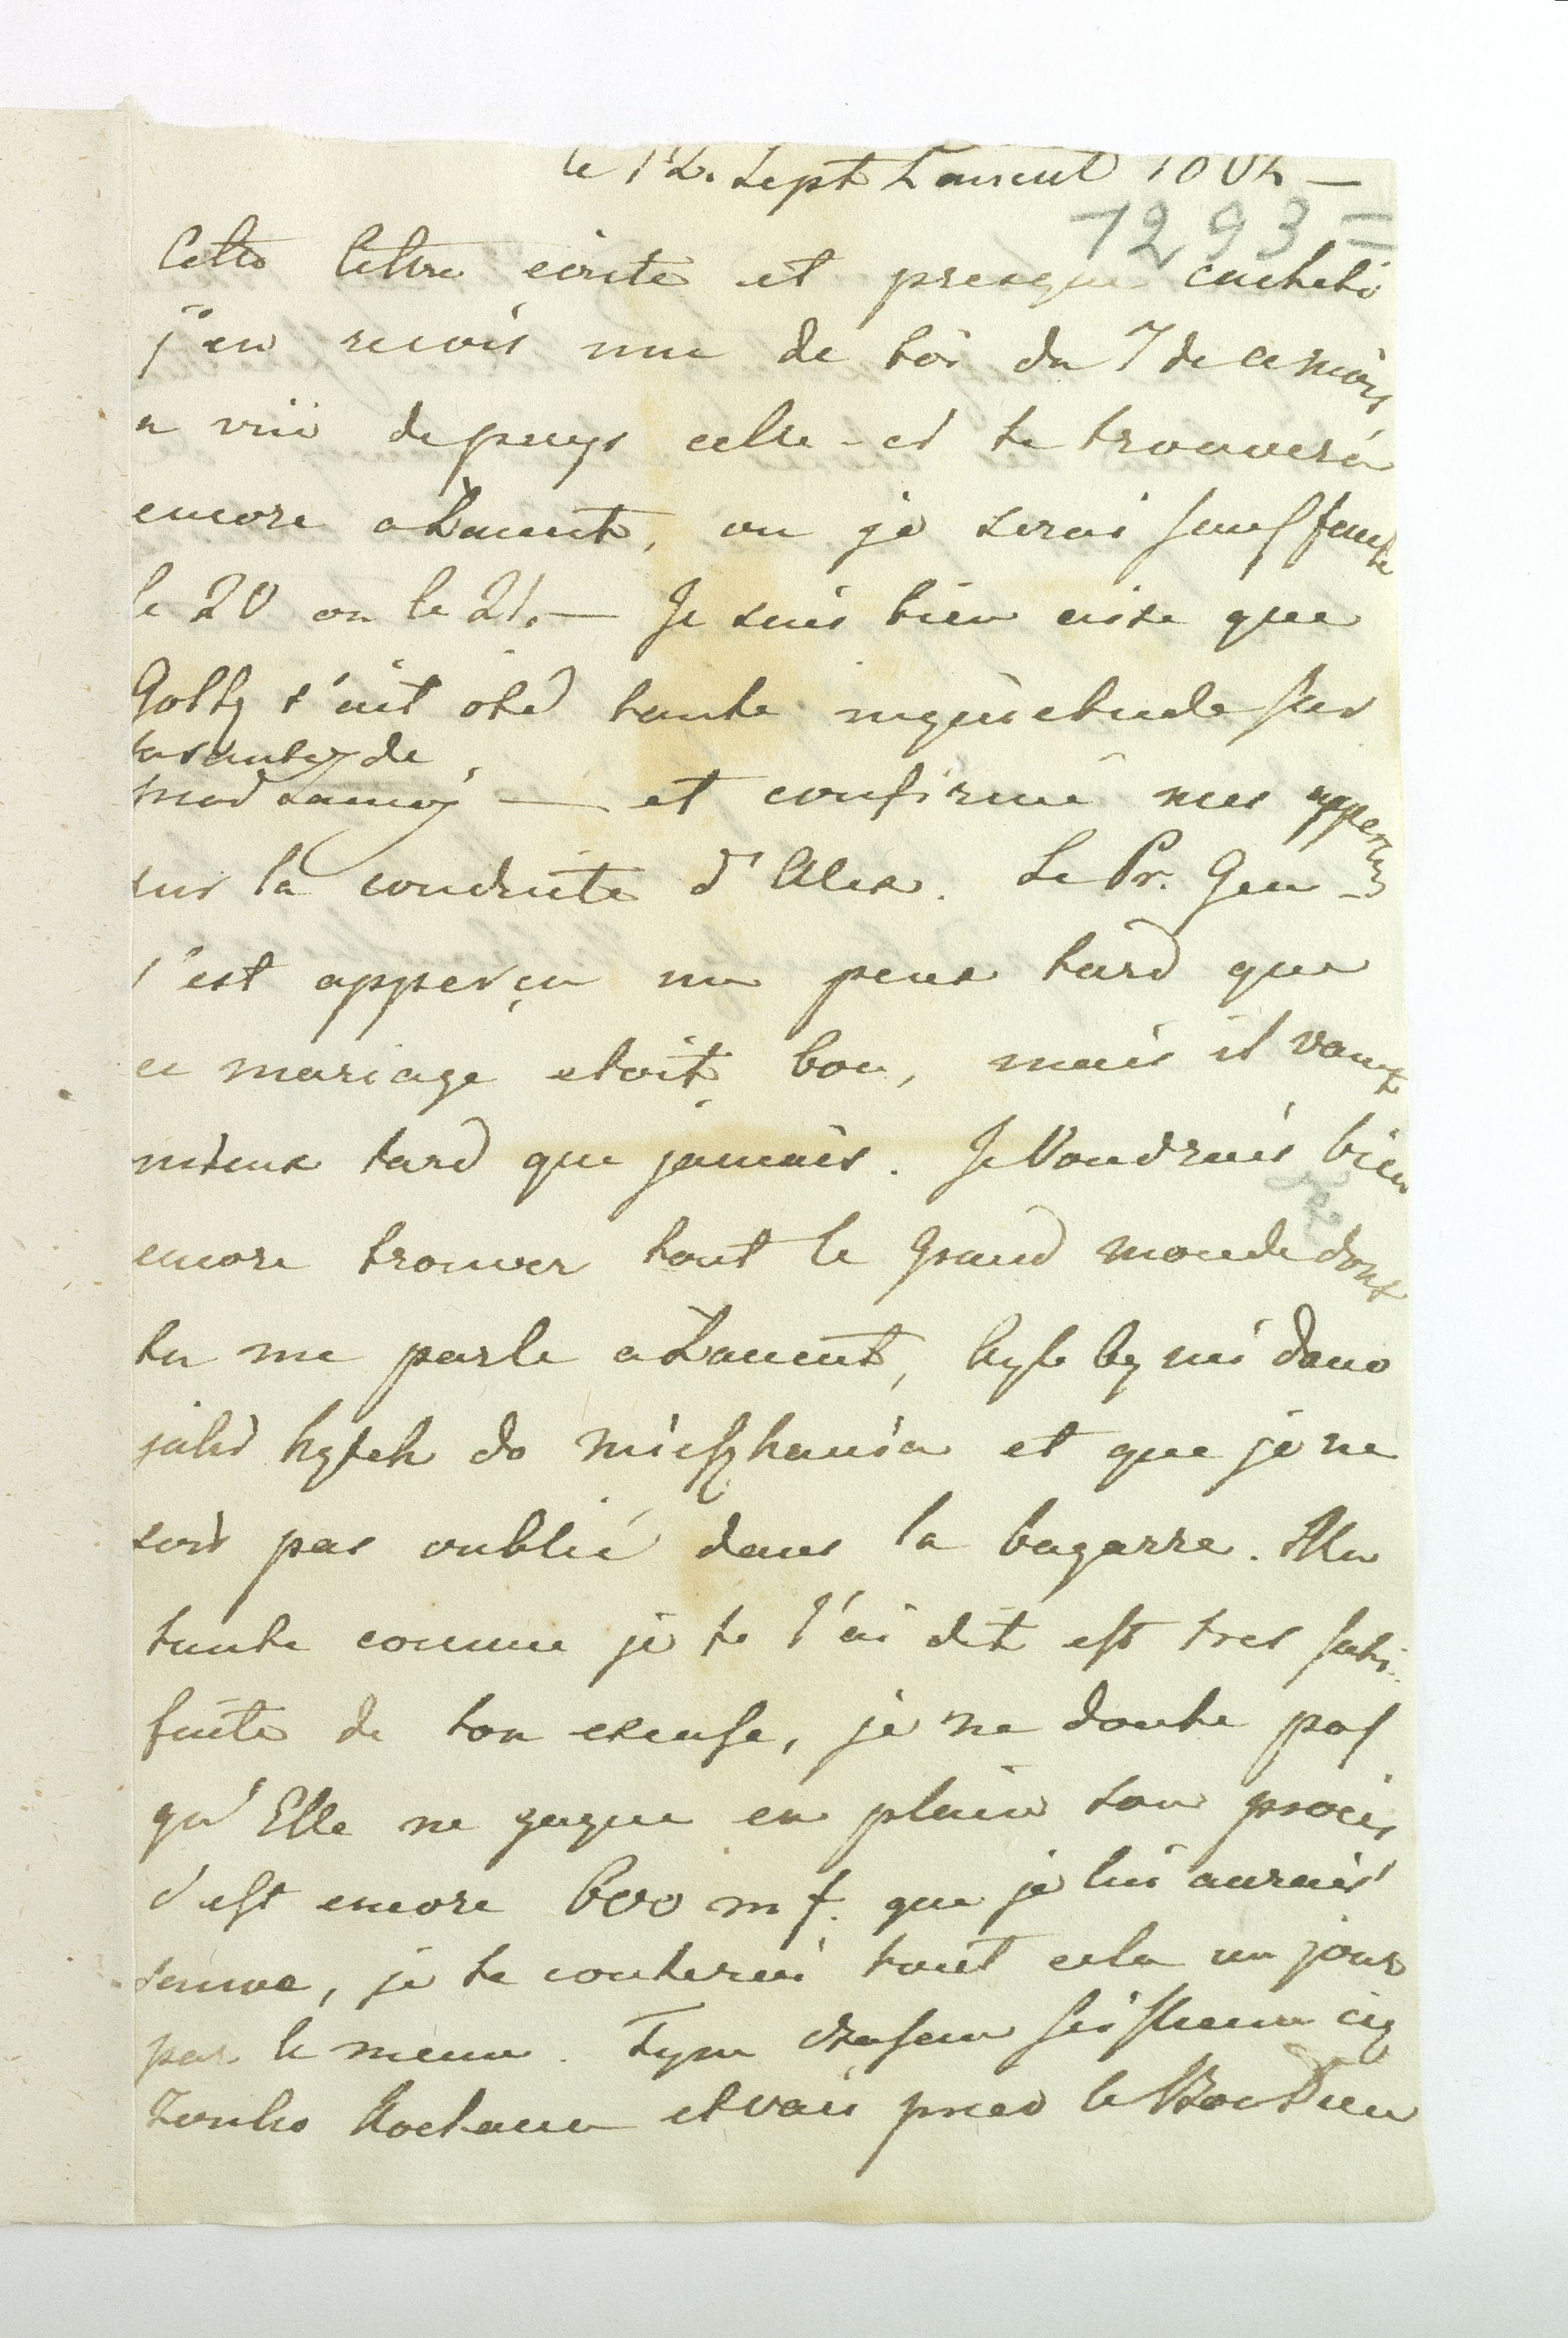 le 12. Sept Lancut 1804 —
1293
Cette lettre ecrite et presque cacheté
j'en recois une de toi du 7 de ce mois,
a vüe de pays celle-ci te trouvera
encore a Lancut, ou je serai sauf faute
le 20 ou le 21. — Je suis bien aise que
Goltz t'ait oté toute inquietude sur
la santé de
Mad — et confirmé mes appercus
sur la conduite d'Alex. Le Pr. Gen —
s'est apperçu un peux tard que
ce mariage etoit bon, mais il vaux
mieux tard que jamais. Je Voudrais bien
encore trouver tout le grand monde dont
tu me parle a Lancut, byle by mi dano
jaki kątek do Mieszkania et que je ne
sois pas oublié dans la bagarre. Ma
tante comme je te l'ai dit est tres satis-
faite de ton excuse, je ne doute pas
qu'Elle ne gagne en plein son procés
c'est encore 600 m f. que je lui aurais
sauvé, je te conterai tout cela un jour
par le menu. Tym czasem sciskam cię
Zonko Kochana et vais prier le Bon Dieu